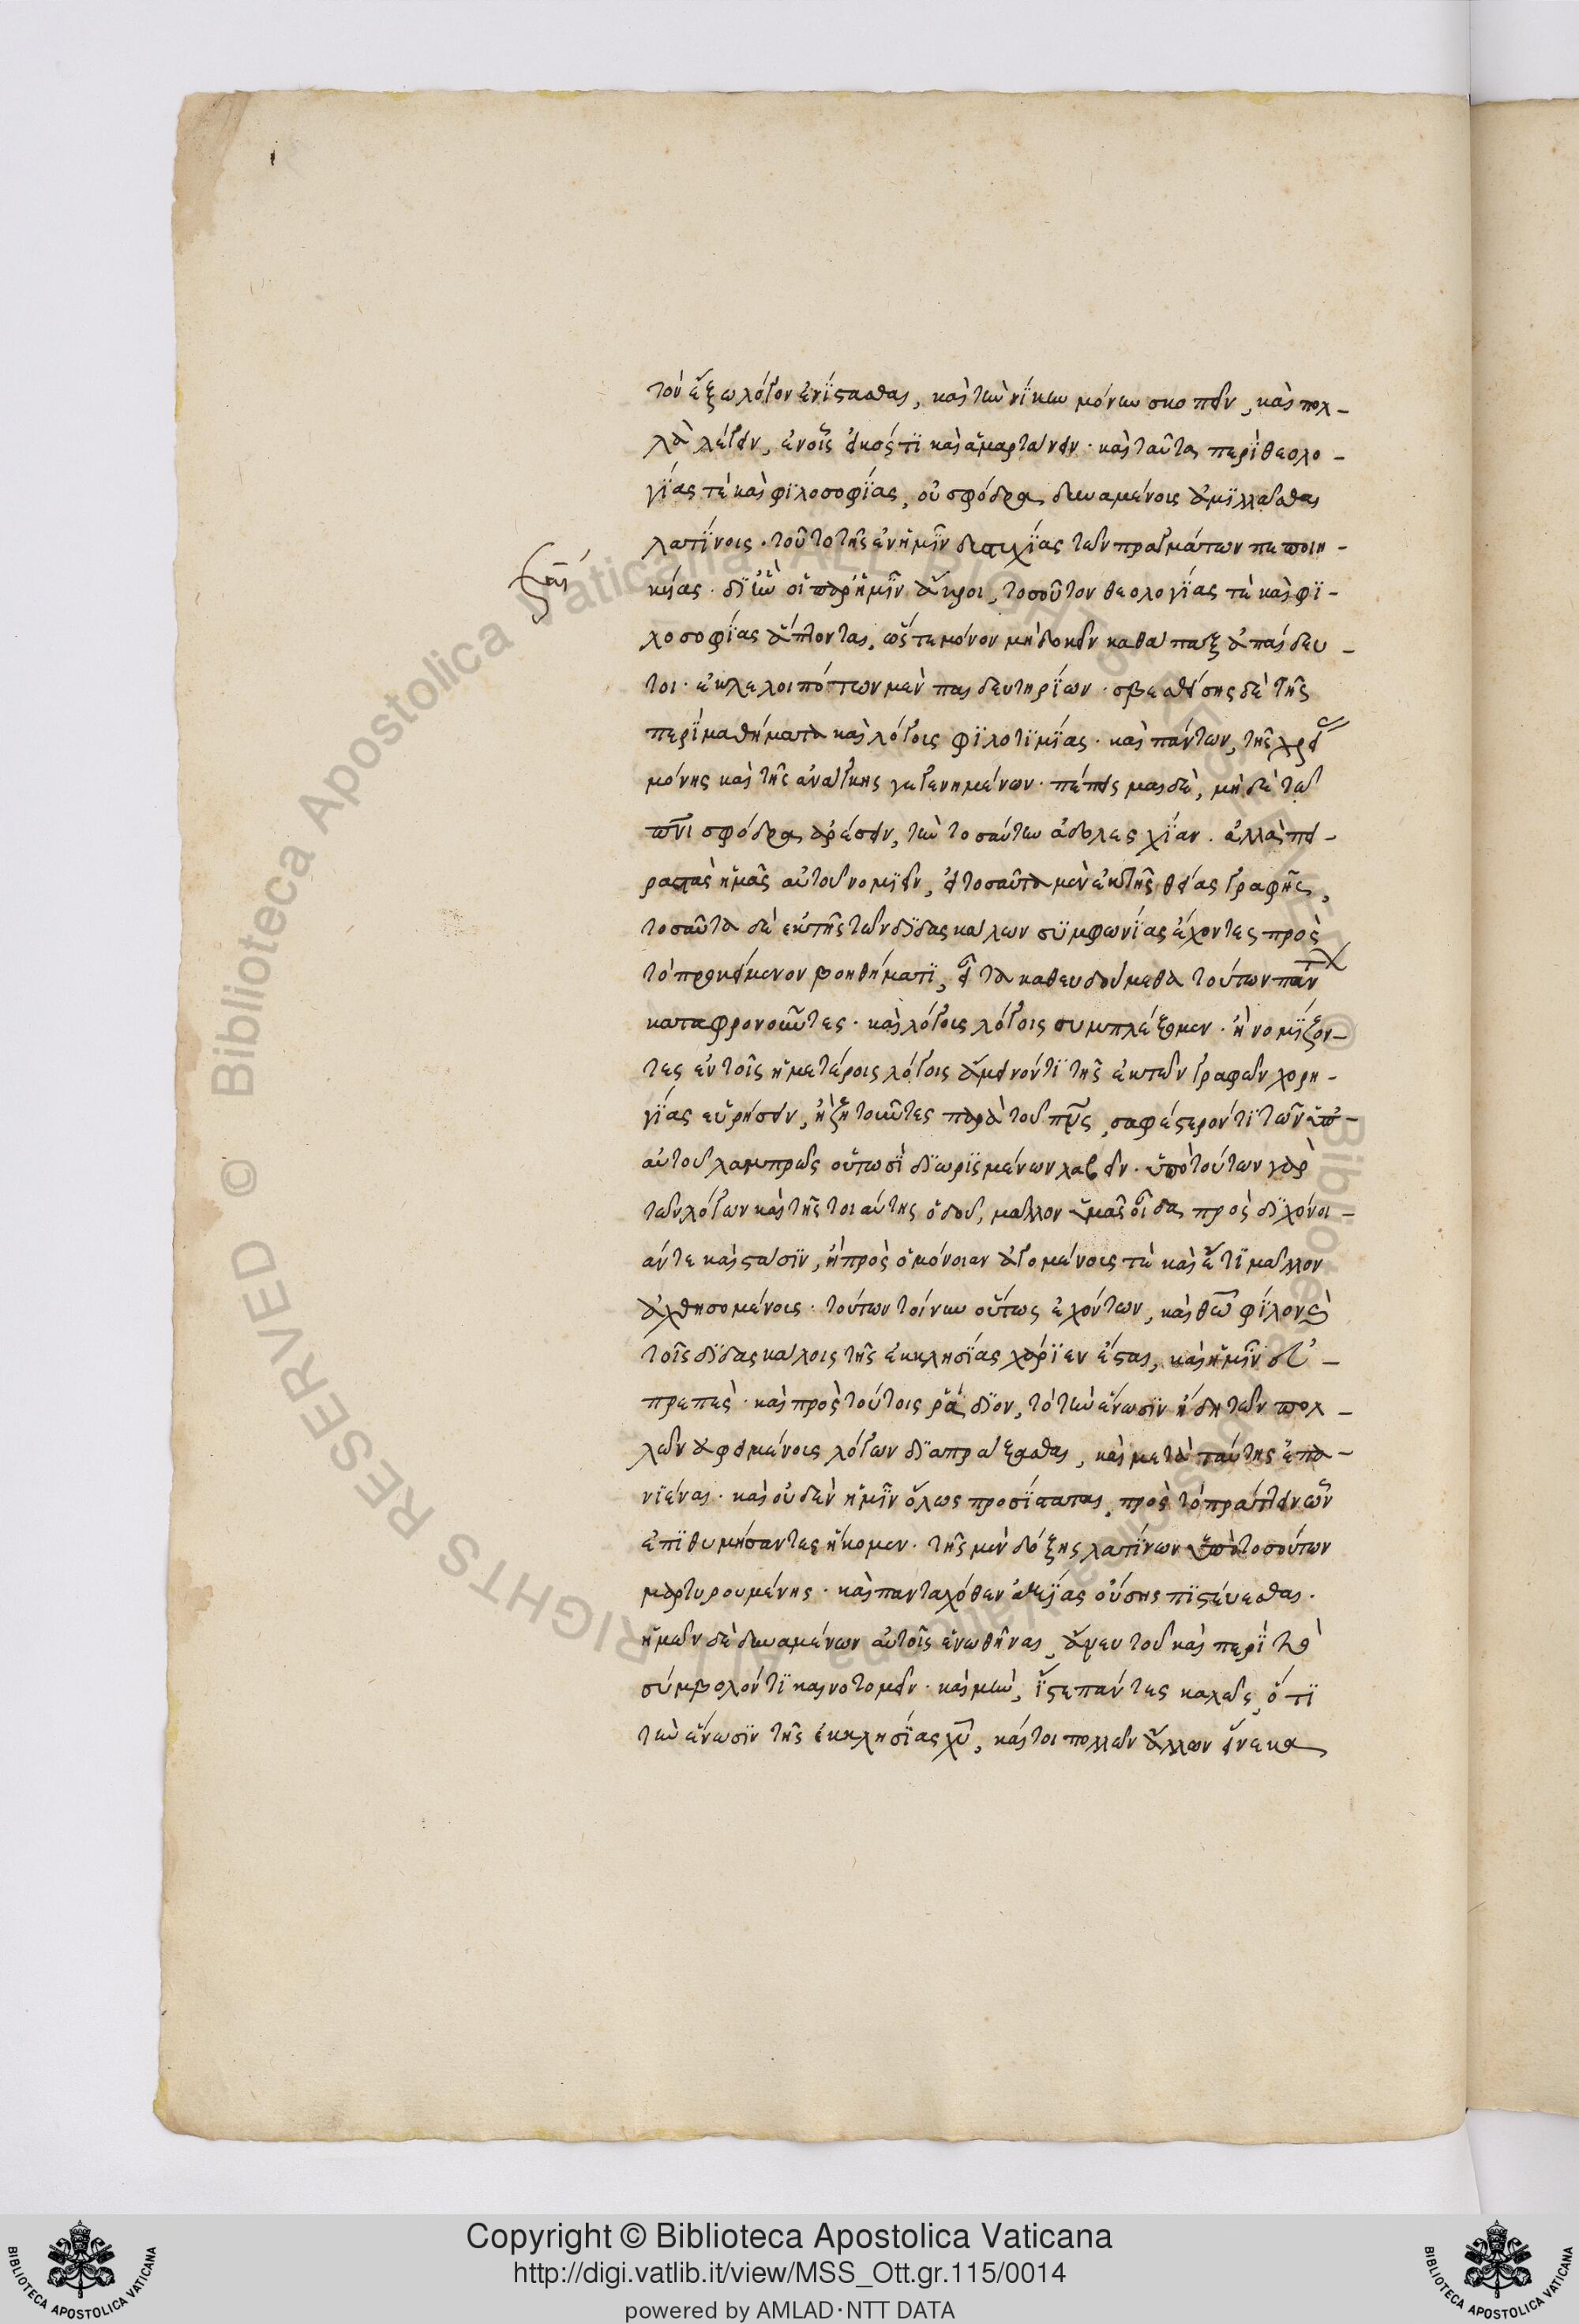 τὸν ἔξω λόγον ἐνίστασθαι, καὶ τὴν νίκην μόνην σκοπεῖν, καὶ πολ-
λὰ λέγειν, ἐν οἷς εἰκός τι καὶ ἁμαρτάνειν· καὶ ταῦτα περὶ θεολο-
γίας τὲ καὶ φιλοσοφίας, οὐ σφόδρα δυναμένοις ἁμιλλᾶσθαι
λατίνοις· τοῦτο τῆς ἐν ἡμῖν δυστυχίας τῶν πραγμάτων πεποιη-
κυίας· δι' ἣν οἱ παρ' ἡμῖν ἄκροι, τοσοῦτον θεολογίας τὲ καὶ φι-
λοσοφίας ἅπτονται, ὥστε μόνον μὴ δοκεῖν καθάπαξ ἀπαίδευ-
τοι· ἐκλελοιπότων μὲν παιδευτηρίων· σβεσθείσης δὲ τῆς
περὶ μαθήματα καὶ λόγους φιλοτιμίας· καὶ πάντων, τῆς χρεί
μόνης καὶ τῆς ἀνάγκης γεγενημένων· πέπεισμαι δὲ, μὴ δὲ τῶ
πνι σφόδρα ἀρέσειν, τὴν τοσαύτην ἀδολεσχίαν. ἀλλὰ πει-
ραστὰς ἡμᾶς αὐτοῦ νομιεῖν, εἰ τοσαῦτα μὲν ἐκ τῆς θείας γραφῆς,
τοσαῦτα δὲ ἐκ τῆς τῶν διδασκάλων συμφωνίας ἔχοντες πρὸς
τὸ προκείμενον βοηθήματι, εἶτα καθευδούμεθα τούτων παν
καταφρονοῦντες· καὶ λόγοις λόγους συμπλέξομεν· ἢ νομίζον-
τες ἐν τοῖς ἡμετέροις λόγοις ἄμεινόν τι τῆς ἐκ τῶν γραφῶν χορη-
γίας εὑρήσειν, ἢ ζητοῦντες παρὰ τοῦ πνς, σαφέστερόν τι τῶν ὑπ-
αὐτοῦ λαμπρῶς οὑτωσὶ διωρισμένων λαβεῖν. ὑπὸ τούτων γὰρ
τῶν λόγων καὶ τῆς τοιαύτης ὁδοῦ, μᾶλλον ὑμᾶς οἶδα πρὸς διχόνοι-
άν τε καὶ στάσιν, ἢ πρὸς ὁμόνοιαν ἀγομένους τὲ καὶ ἔτι μᾶλλον
ἀχθησομένους. τούτων τοίνυν οὕτως ἐχόντων, καὶ θῶ φίλον καὶ
τοῖς διδασκάλοις τῆς ἐκκλησίας χάριεν ἔσται, καὶ ἡμῖν εὐ-
πρεπὲς· καὶ πρὸς τούτοις ῥᾴδιον, τὸ τὴν ἕνωσιν ἤδη τῶν πολ-
λῶν ἀφεμένους λόγων διαπράξασθαι, καὶ μετὰ ταύτης ἐπα-
νιέναι. καὶ οὐδὲν ἡμῖν ὅλως προσίσταται πρὸς τὸ πράττειν ὧν
ἐπιθυμήσαντες ἥκομεν· τῆς μὲν δόξης λατίνων ὑπὸ τοσούτων
μαρτυρουμένης· καὶ πανταχόθεν ἀξίας οὔσης πιστεύεσθαι.
ἡμῶν δὲ δυναμένων αὐτοῖς ἑνωθῆναι, ἄνευ τοῦ καὶ περὶ τὸ
σύμβολόν τι καινοτομεῖν. καὶ μὴν, ἴστε πάντες καλῶς, ὅτι
τὴν ἕνωσιν τῆς ἐκκλησίας χυ, καίτοι πολλῶν ἄλλων ἕνεκα
Copyright © Biblioteca Apostolica Vaticana
http://digi.vatlib.it/view/MSS_Ott.gr.115/0014
powered by AMLAD·NTT DATA